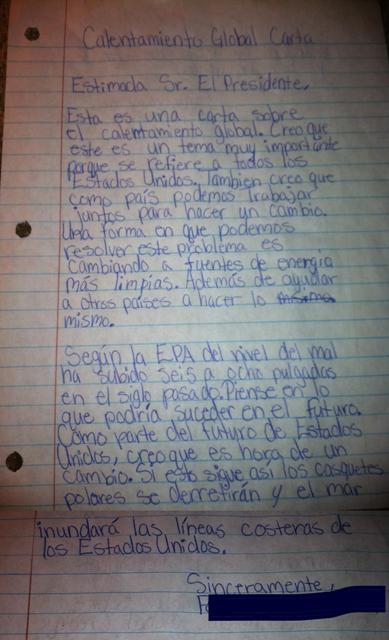 Calentamiento Global Carta
Estimada Sr. El Presidente,
Esta es una carta sobre
el calentamiento global. Creo que
este es un tema muy importante
porque se refiere a todos los
Estados Unidos. Tambien creo que
como país podemos trabajar
juntos para hacer un cambio.
Una forma en que podemos
resolver este problema es
cambiando a fuentes de energía
más limpias. Además de ayudar
a otros países a hacer lo
mismo.
Según la EPA del nivel del mal
ha subido seis a ocho pulgadas
en el siglo pasado. Piense en lo
que podría suceder en el futuro.
Como parte del futuro de Estados
Unidos, creo que es hora de un
cambio. Si esto sigue así los casquetes
polares se derretirán y el mar
inundará las líneas costeras de
los Estados Unidos.
Sinceramente,